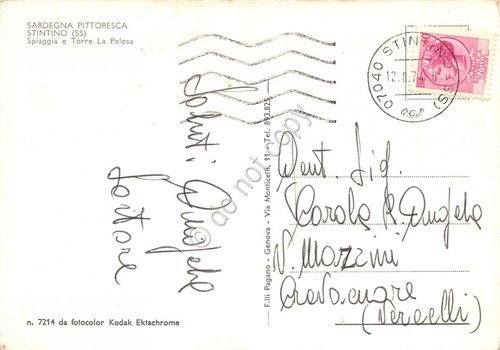 SARDEGNA PITTORESCA
STINTINO (SS)
Spiaggia e Torre La Pelosa
07040 STINTINO (SS)
12.8.74
Saluti
Angela
n. 7214 da fotocolor Kodak Ektachrome
F.lli Pagano - Genova - Via Monticelli, 11 - Tel. 893.825
Gent. Sig.
Carola R. Angela
V. Mazzini
Crevacuore
(Vercelli)
do not copy